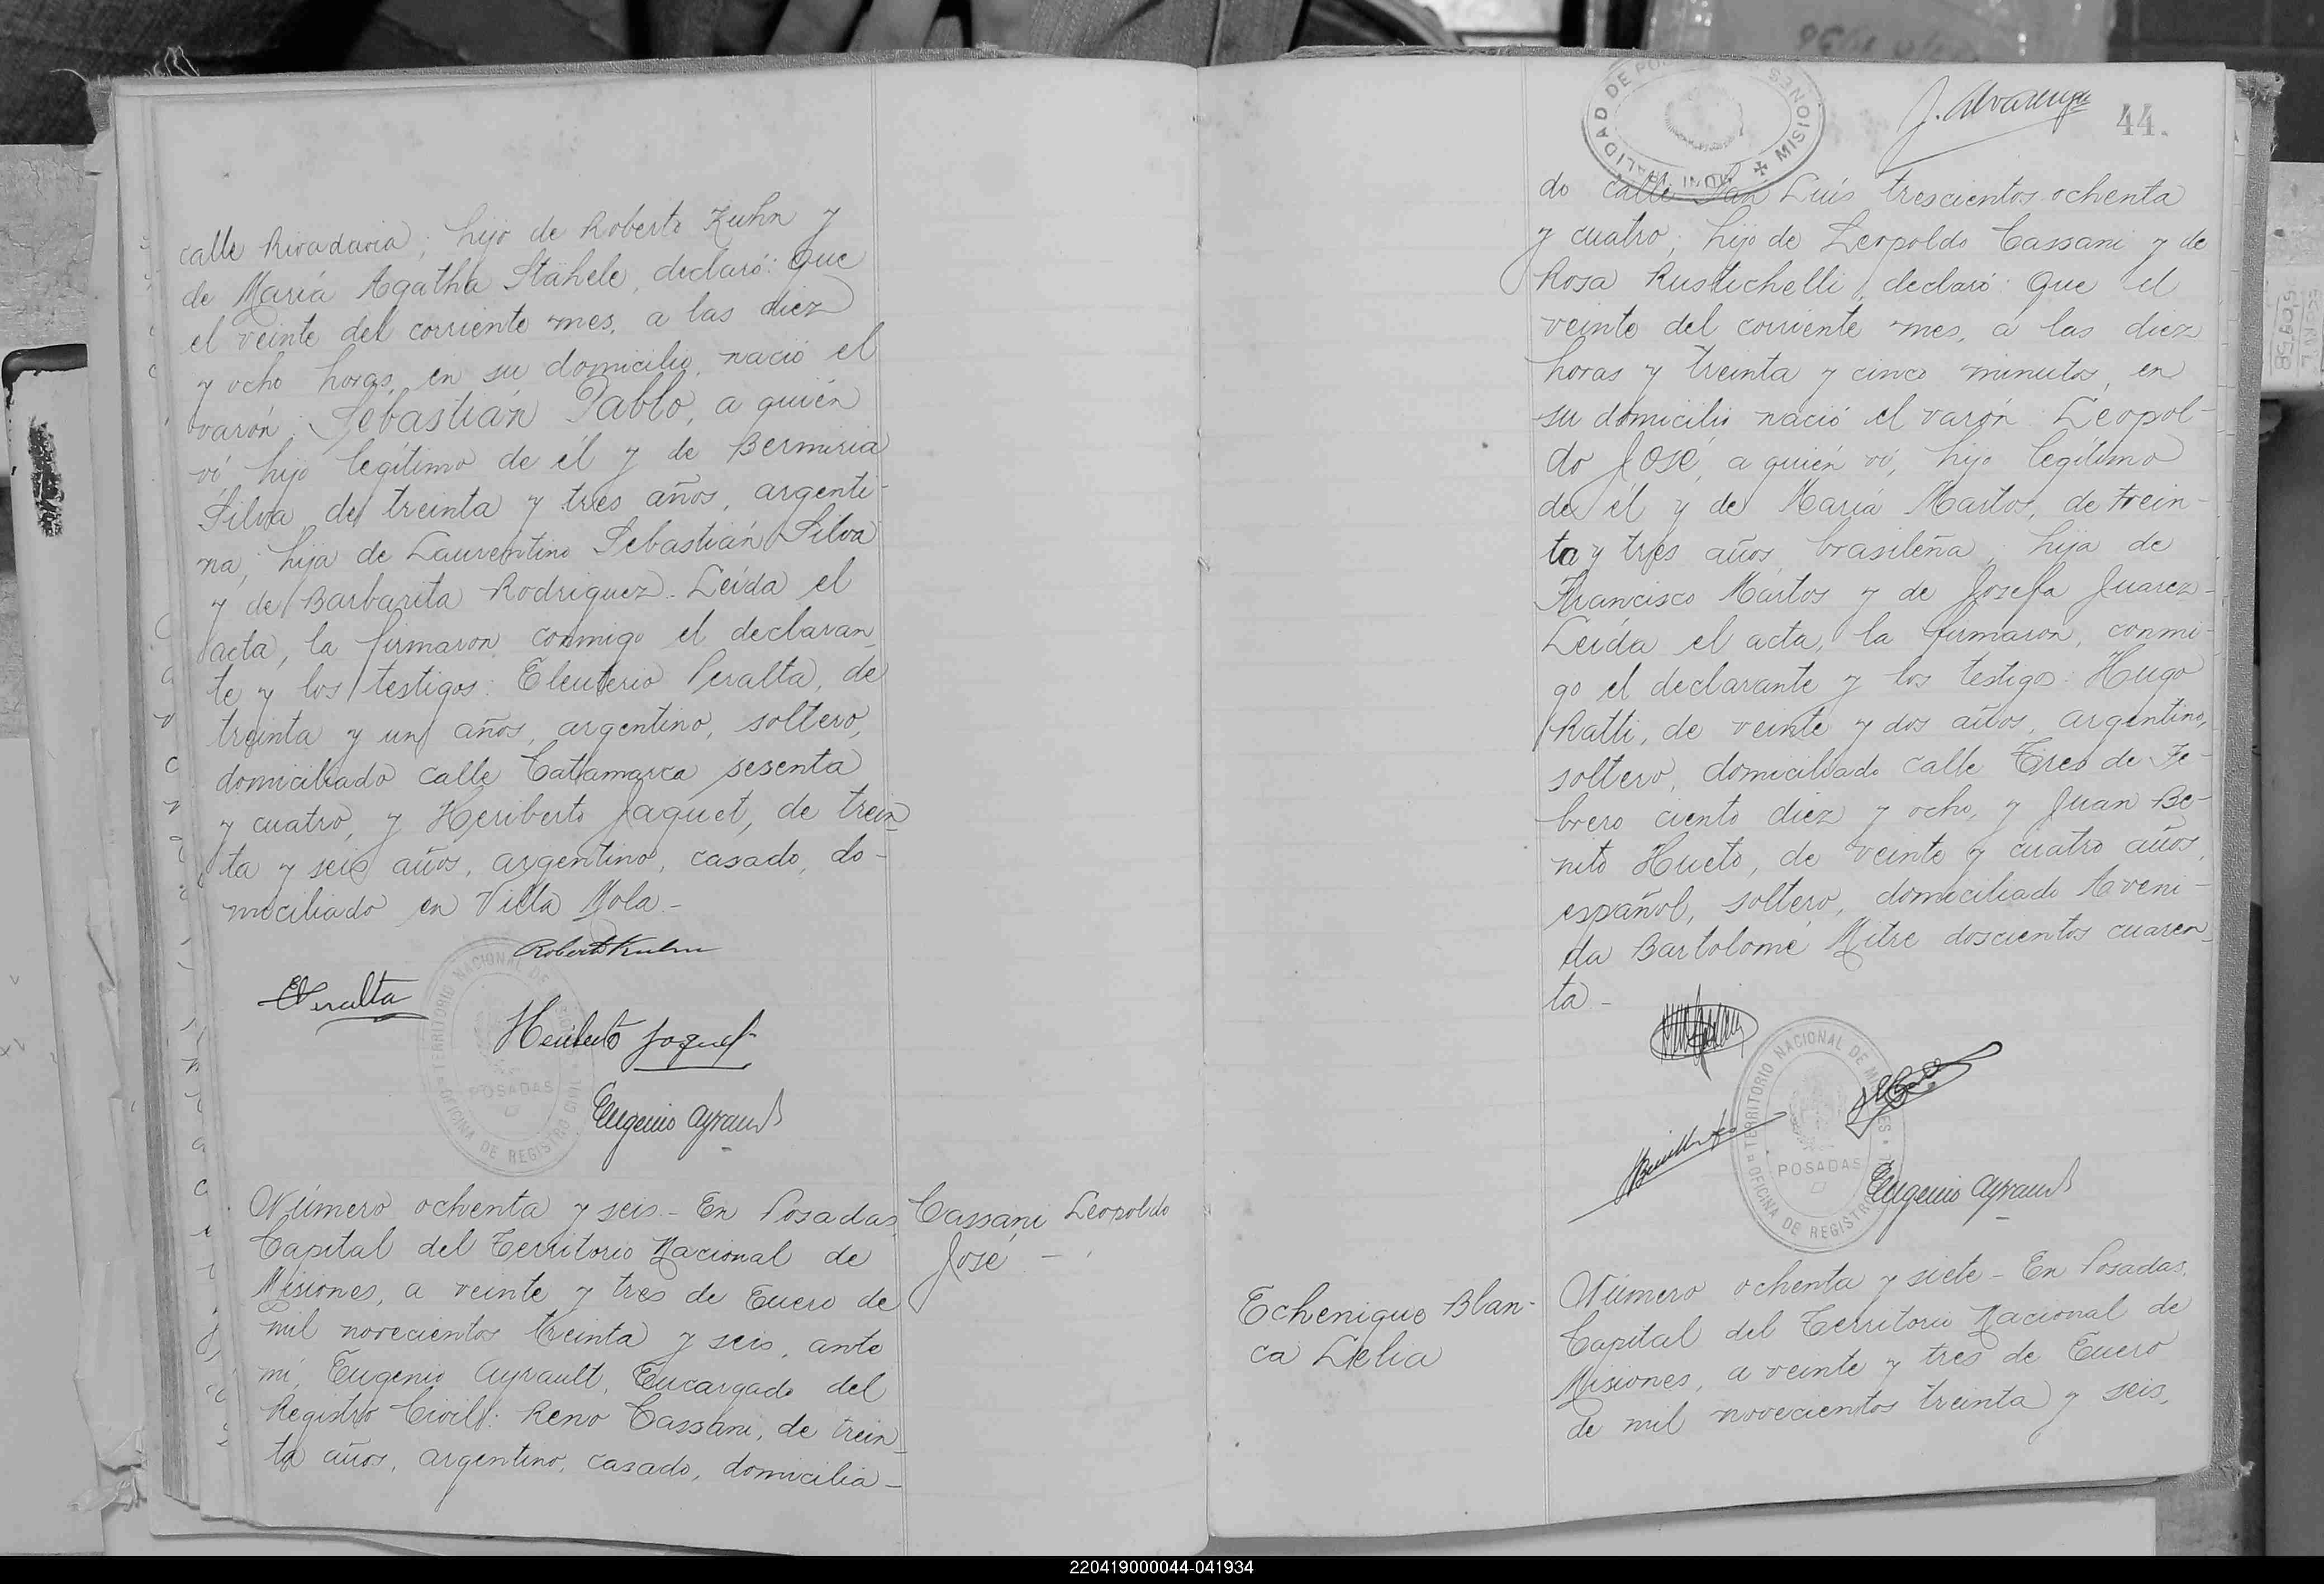 calle Rivadavia; hijo de Roberto Kuhn y
de María Agatha Stahele, declaró: Que
el veinte del corriente mes, a las diez
y ocho horas, en su domicilio, nació el
varón: Sebastián Pablo, a quién
ví, hijo legítimo de él y de Bermiria
Silva, de treinta y tres años, argenti-
na; hija de Laurentino Sebastián Silva
y de Barbarita Rodriguez. Leída el
acta, la firmaron conmigo el declaran-
te y los testigos: Eleuterio Peralta, de
treinta y un años, argentino, soltero,
domiciliado calle Catamarca sesenta
y cuatro, y Heriberto Jaquet, de trein-
ta y seis años, argentino, casado, do-
miciliado en Villa Mola-
Roberto Kuhn
EPeralta
Heriberto Jaquet
Eugenio Ayrault
TERRITORIO NACIONAL DE
POSADAS
OFICINA DE REGISTRO CIVIL
Número ochenta y seis- En Posadas,
Capital del Territorio Nacional de
Misiones, a veinte y tres de Enero de
mil novecientos treinta y seis, ante
mí, Eugenio Ayrault, Encargado del
Registro Civil: Reno Cassani, de trein-
ta años, argentino, casado, domicilia-
Cassani Leopoldo
José-
MISIONES
J. Alvarenga
44.
do calle San Luis trescientos ochenta
y cuatro; hijo de Leopoldo Cassani y de
Rosa Rustichelli, declaró: Que el
veinte del corriente mes, a las diez
horas y treinta y cinco minutos, en
su domicilio nació el varón: Leopol-
do José, a quién ví, hijo legítimo
de él y de María Martos, de trein-
ta y tres años, brasileña; hija de
Francisco Martos y de Josefa Juarez-
Leída el acta, la firmaron, conmi-
go el declarante y los testigos: Hugo
Ratti, de veinte y dos años, argentino,
soltero, domiciliado calle Tres de Fe-
brero ciento diez y ocho, y Juan Be-
nito Hueto, de veinte y cuatro años,
español, soltero, domiciliado Aveni-
da Bartolomé Mitre doscientos cuaren-
ta-
TERRITORIO NACIONAL DE MISIONES
POSADAS
OFICINA DE REGISTRO
Eugenio Ayrault
Echenique Blan-
ca Lelia
Número ochenta y siete- En Posadas,
Capital del Territorio Nacional de
Misiones, a veinte y tres de Enero
de mil novecientos treinta y seis,
220419000044-041934